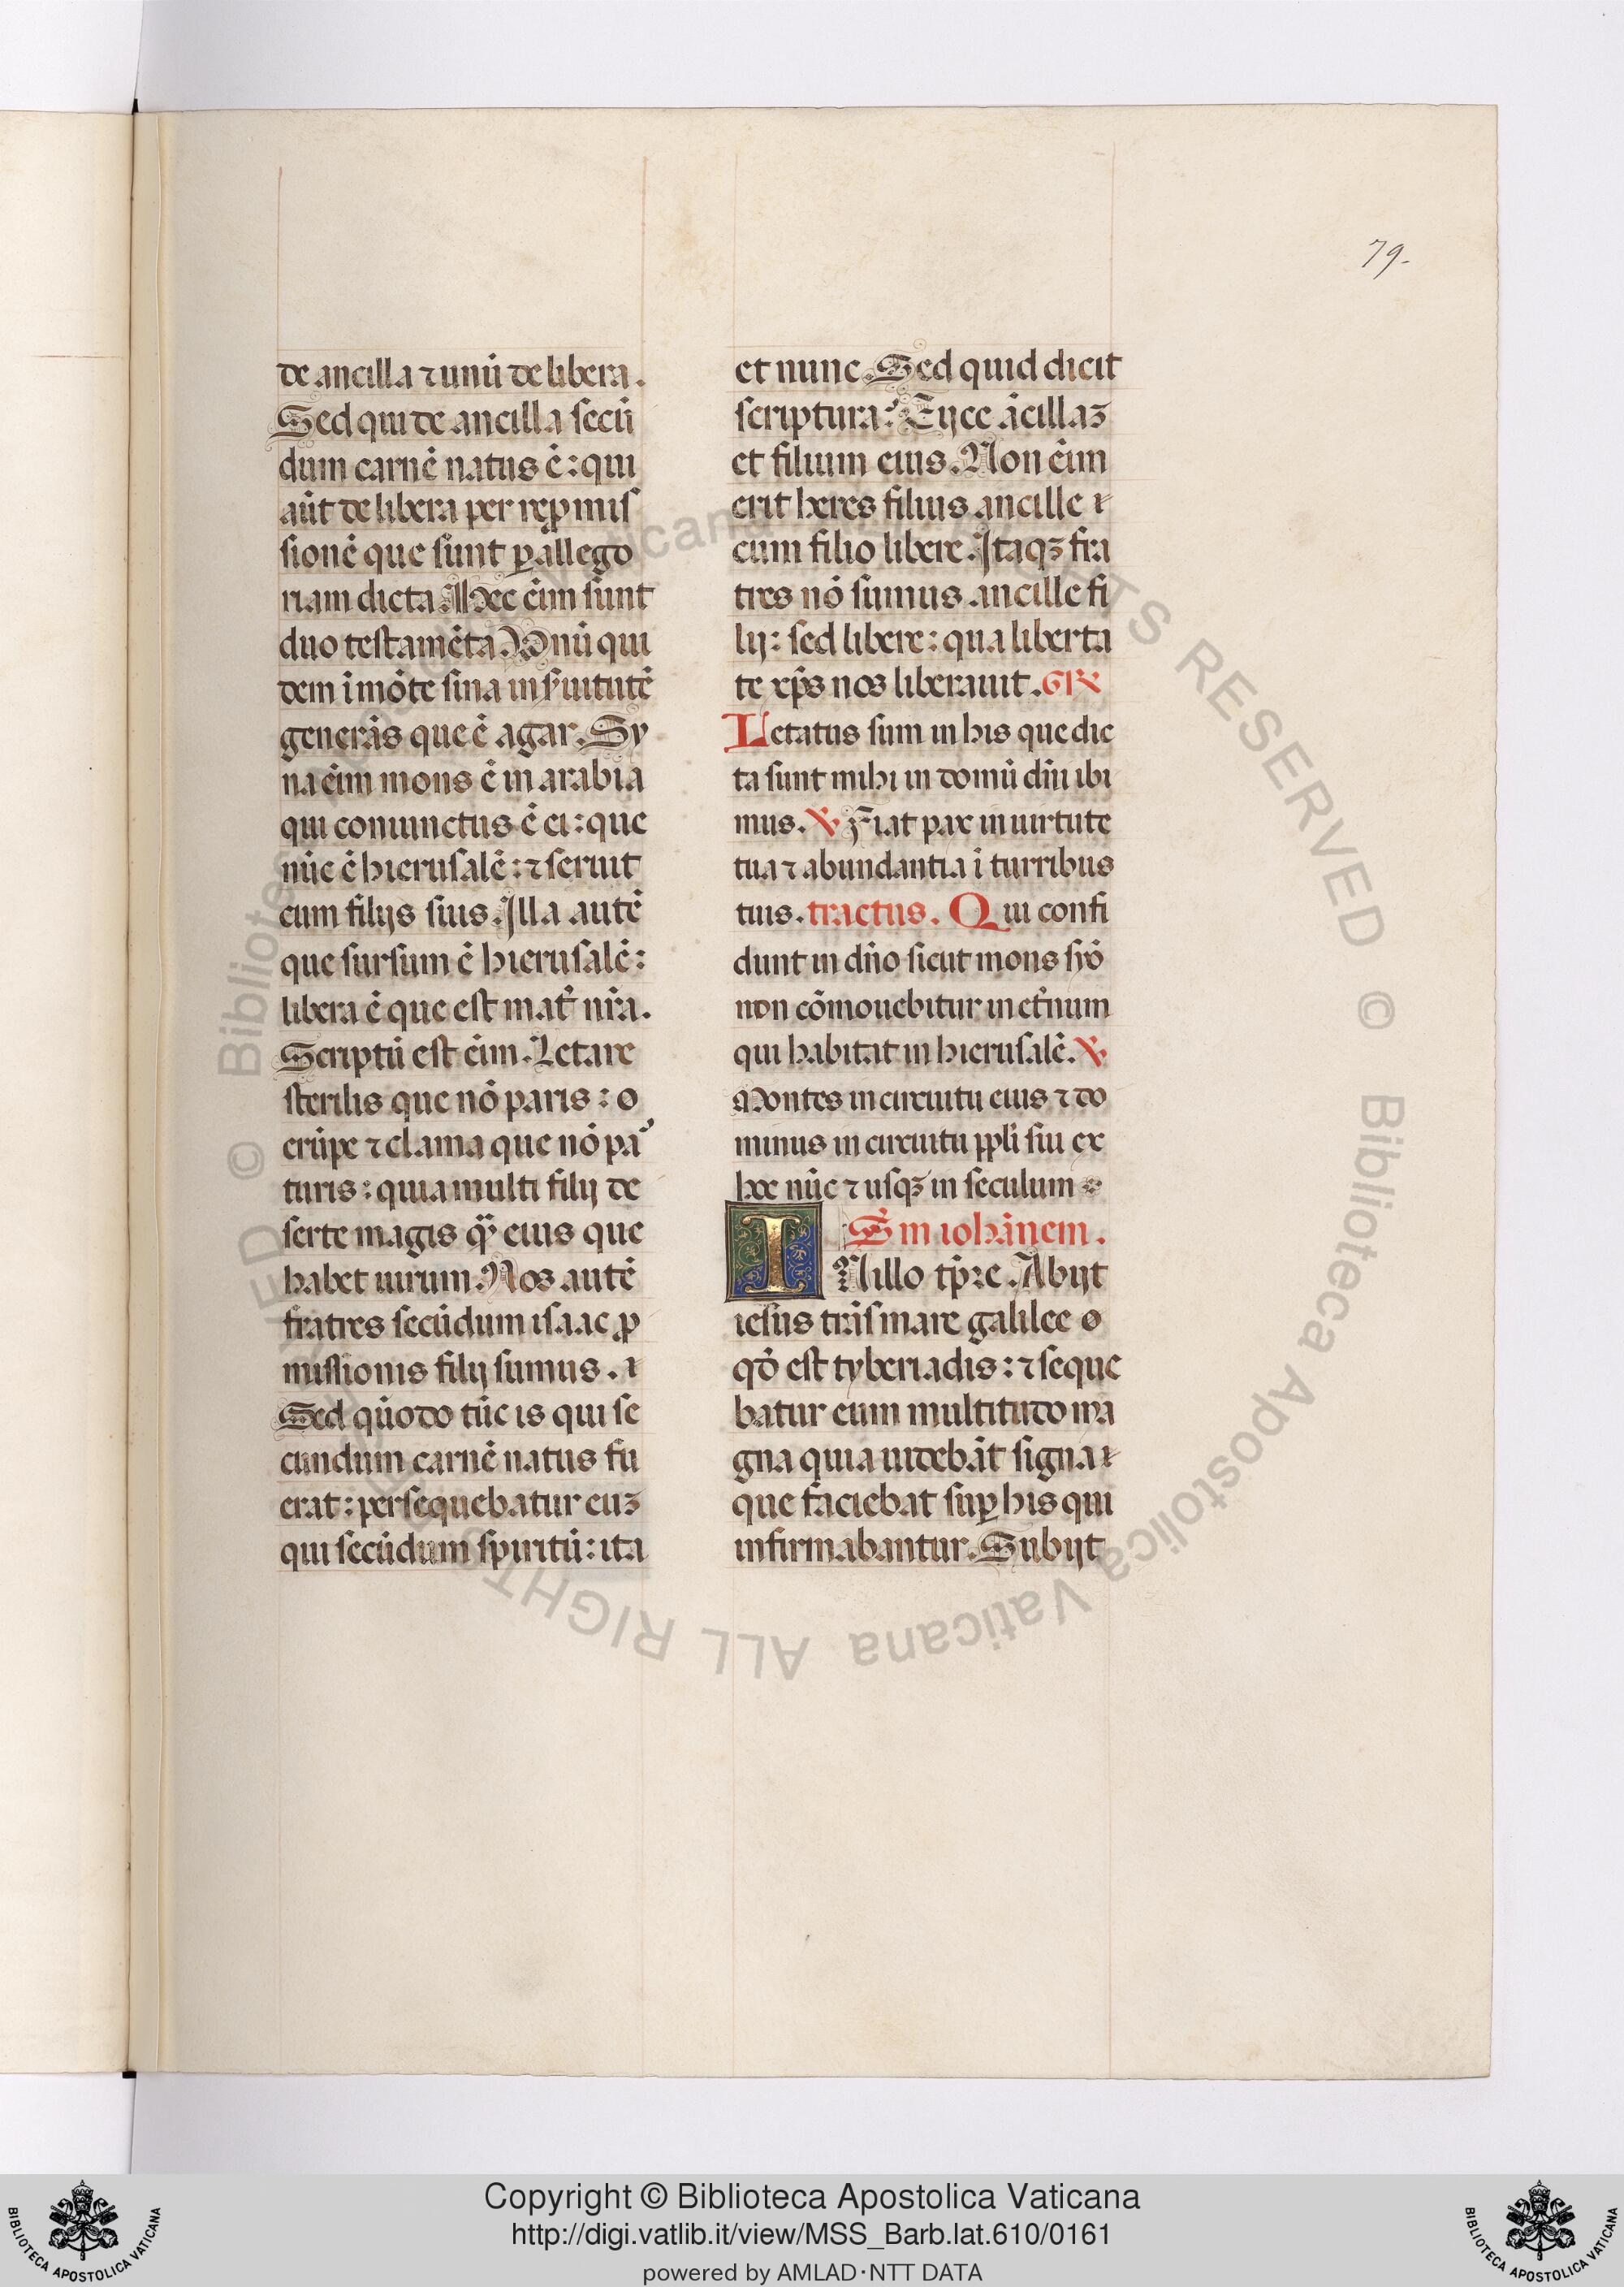 79.
de ancilla ⁊ unū de libera.
Sed qui de ancilla secū
dum carnē natus ē: qui
aūt de libera per rep̱mis
sionē que sunt p̱ allego
riam dicta. Hec eīm sunt
duo testamēta. Vnū qui
dem ī mōte sina in s̄uitutē
generās que ē agar. Sy
na eīm mons ē in arabia
qui coniunctus ē ei: que
nūc ē hierusalē: ⁊ seruit
cum filijs suis. Illa autē
que sursum ē hierusalē:
libera ē que est mat̄ nr̄a.
Scriptū est eīm. Letare
sterilis que nō paris: o
erūpe ⁊ clama que nō pa
turis: quia multi filij de
serte magis q̄ eius que
habet uirum. Nos autē
fratres secūdum isaac ꝓ
missionis filij sumus.
Sed quōdo tūc is qui se
cundum carnē natus fu
erat: persequebatur euʒ
qui secūdum spiritū: ita
et nunc. Sed quid dicit
scriptura? Eijce ācillaʒ
et filium eius. Non eīm
erit heres filius ancille
cum filio libere. Itaqʒ fra
tres nō sumus ancille fi
lij: sed libere: qua liberta
te xp̄s nos liberauit. GR̄
Letatus sum in his que dic
ta sunt mihi in domū dn̄i ibi
mus. ℣ Fiat pax in uirtute
tua ⁊ abundantia ī turribus
tuis. tractus. Qui confi
dunt in dn̄o sicut mons syō
non cōmouebitur in et̄num
qui habitat in hierusalē. ℣
Montes in circuitu eius ⁊ do
minus in circuitu ppl̄i sui ex
hoc nūc ⁊ usqʒ in seculum
S̄m iohānem.
IN illo tp̄re. Abijt
iesus trās mare galilee
qđ est tyberiadis: ⁊ seque
batur eum multitudo ma
gna quia uidebāt signa
que faciebat sup̱ his qui
infirmabantur. Subijt
© Biblioteca Apostolica Vaticana ALL RIGHTS RESERVED © Biblioteca Apostolica Vaticana ALL RIGHTS RESERVED
Copyright © Biblioteca Apostolica Vaticana
http://digi.vatlib.it/view/MSS_Barb.lat.610/0161
powered by AMLAD·NTT DATA
BIBLIOTECA APOSTOLICA VATICANA
BIBLIOTECA APOSTOLICA VATICANA